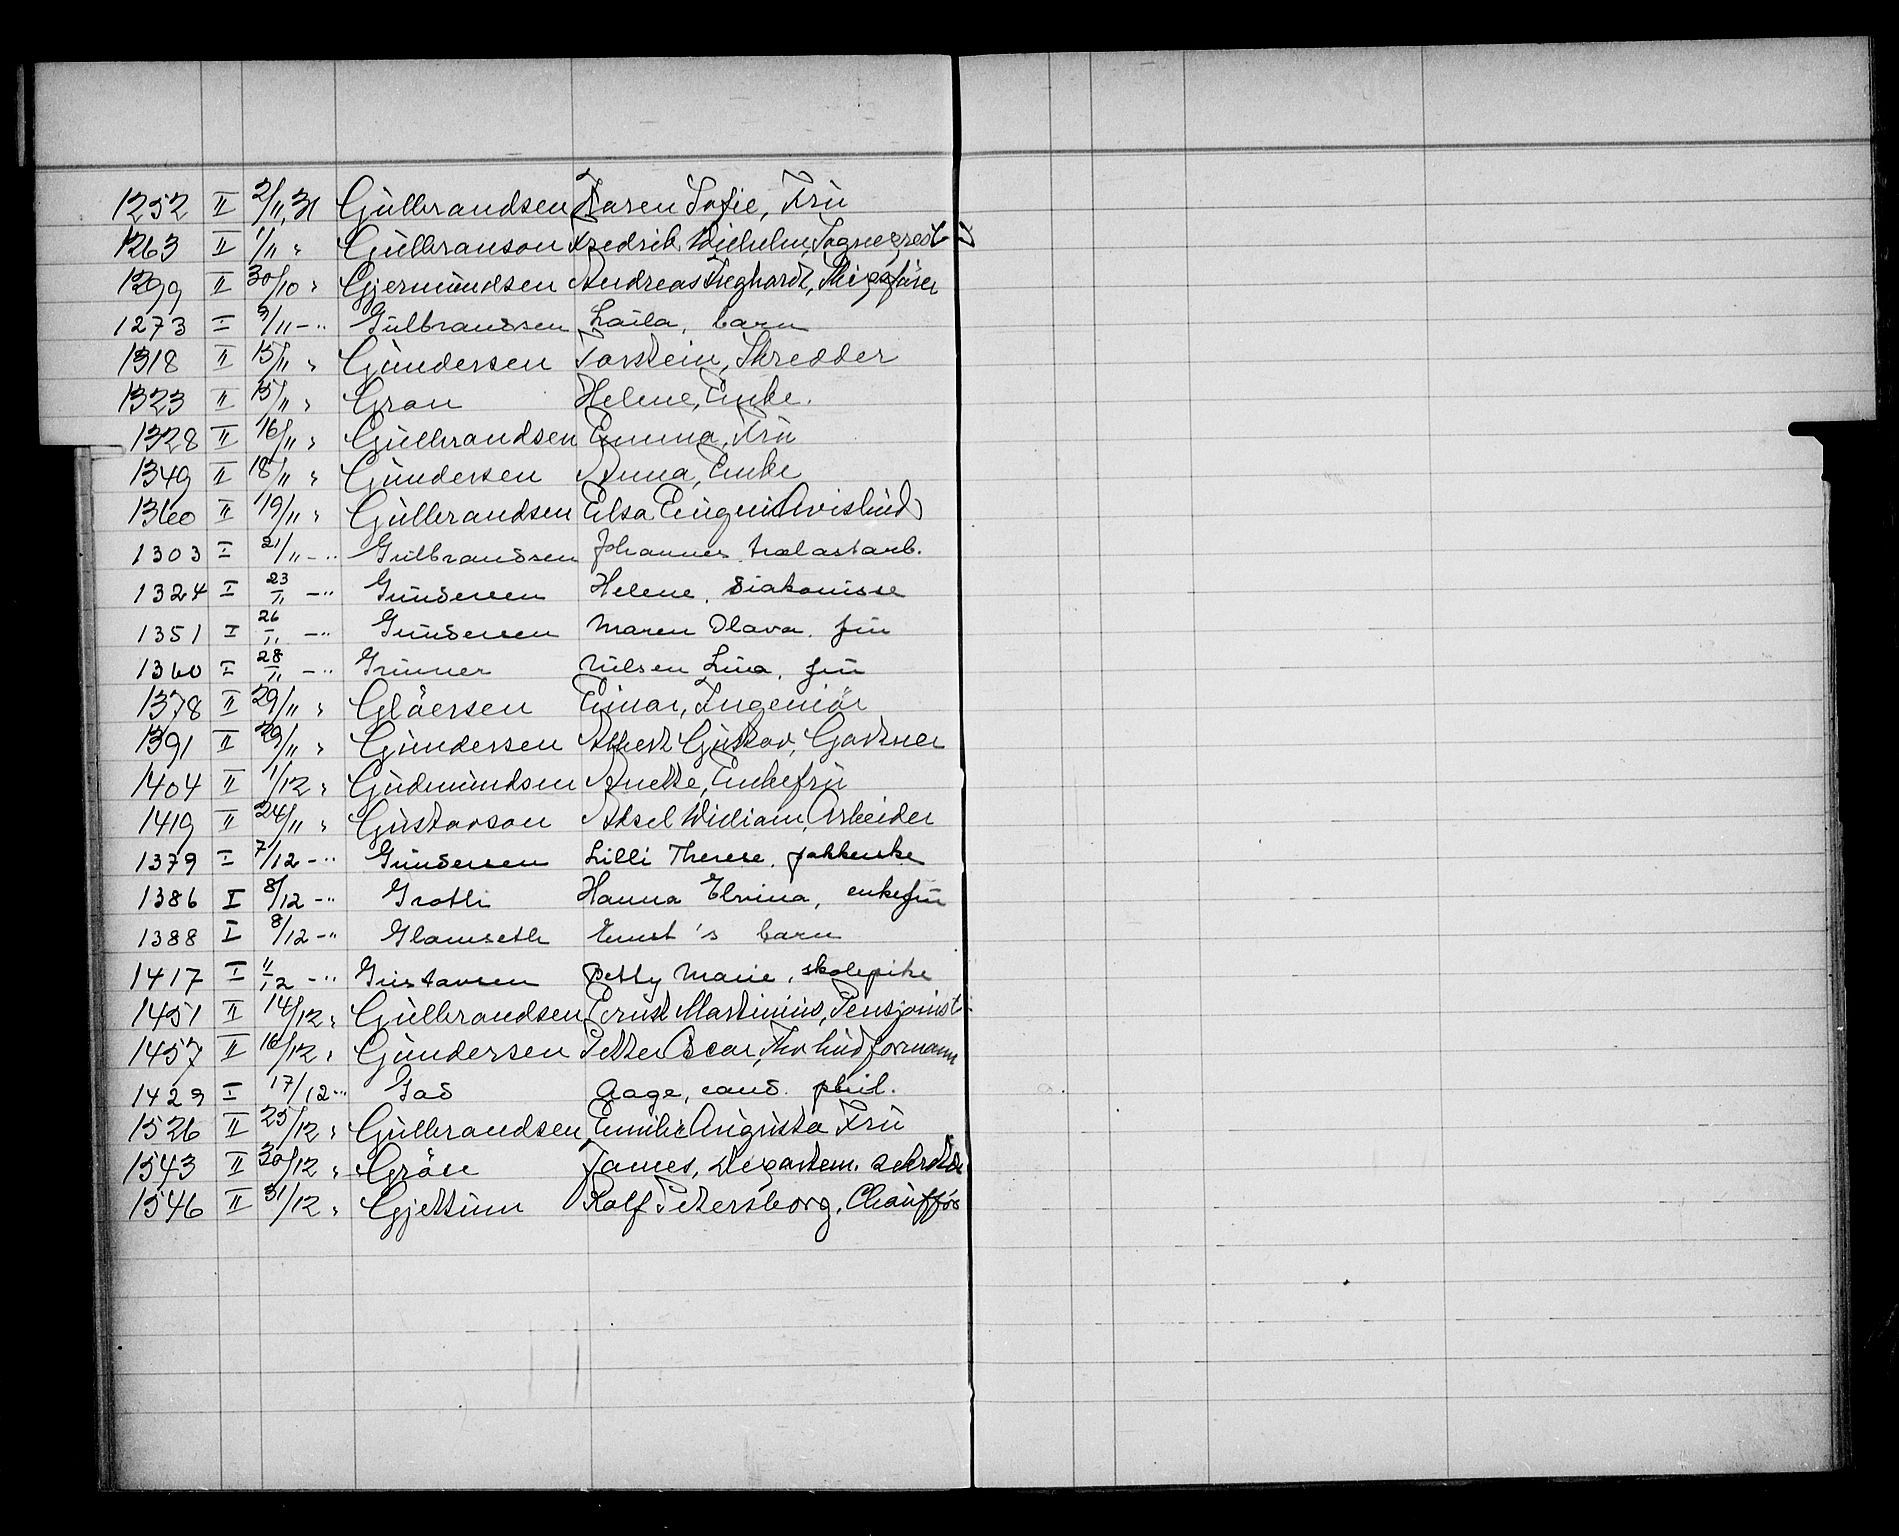 1252 II 2/11 31 Gulbrandsen Karen Sofie, Fru
1263 II 1/11 " Gulbranson Fredrik Wilhelm, Sogneprest
1299 II 30/10 " Gjermundsen Andreas Neghardt, Skipsfører
1273 I 9/11 - " Gulbrandsen Laila, barn
1318 II 15/11 " Gundersen Torstein, Skredder
1323 II 15/11 " Gran Helene, Enke.
1328 II 16/11 " Gulbrandsen Emma, Fru
1349 II 18/11 " Gundersen Anna, Enke
1360 II 19/11 " Gulbrandsen Elsa Eugeni Avisbud
1303 I 21/11 - " Gulbrandsen Johannes trælastarb.
1324 I 23/11 - " Gundersen Helene, diakonisse
1351 I 26/11 - " Gundersen Maren Olava, fru
1360 I 28/11 - " Gruner Nilsen Lina, fru
1378 II 29/11 " Gløersen Einar, Ingeniør
1391 II 29/11 " Gundersen Albert Gustav, Gartner
1404 II 1/12 " Gudmundsen Anette, Enkefru
1419 II 24/11 " Gustavson Aksel William, Arbeider
1379 I 7/12 - " Gundersen Lilli Therese, pakkerske
1386 I 8/12 - " Grotli Hanna Elvina, enkefru
1388 I 8/12 - " Glamseth Ernst's barn
1417 I 11/12 - " Gustavsen Betty Marie, skolepike
1451 II 14/12 " Gulbrandsen Ernst Martinius, Pensjonist
1457 II 16/12 " Gundersen Petter Oscar, formann
1429 I 17/12 - " Gad Aage, cand. phil.
1526 II 25/12 " Gulbrandsen Emilie Augusta Fru
1543 II 30/12 " Grøn James, Departem. sekretær
1546 II 31/12 " Gjettum Rolf Petersborg, Chauffør